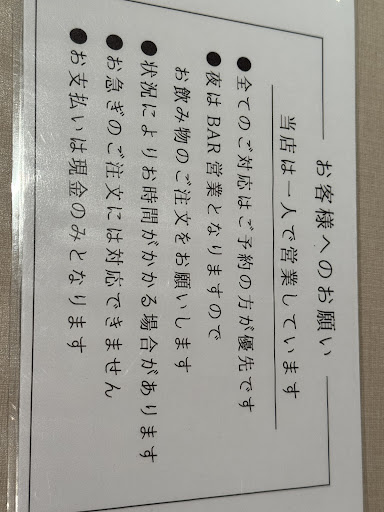 お客様へのお願い
当店は一人で営業しています
●全てのご対応はご予約の方が優先です
●夜はBAR営業となりますので
お飲み物のご注文をお願いします
●状況によりお時間がかかる場合があります
●お急ぎのご注文には対応できません
●お支払いは現金のみとなります